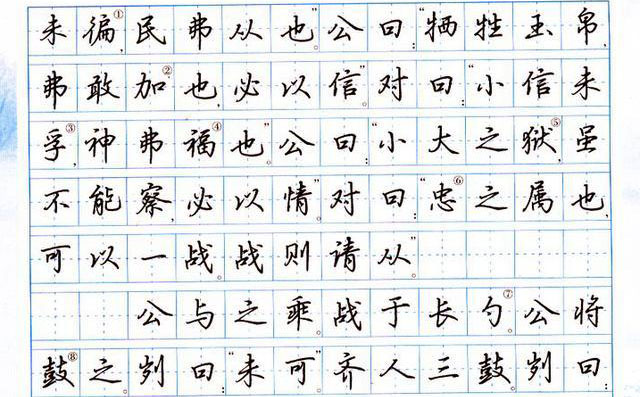 未徧①,民弗从也。”公曰:“牺牲玉帛,
弗敢加②也,必以信。”对曰:“小信未
孚③,神弗福④也。”公曰:“小大之狱⑤,虽
不能察,必以情。”对曰:“忠⑥之属也,
可以一战。战则请从。”
公与之乘。战于长勺⑦。公将
鼓⑧之。刿曰:“未可。”齐人三鼓。刿曰: